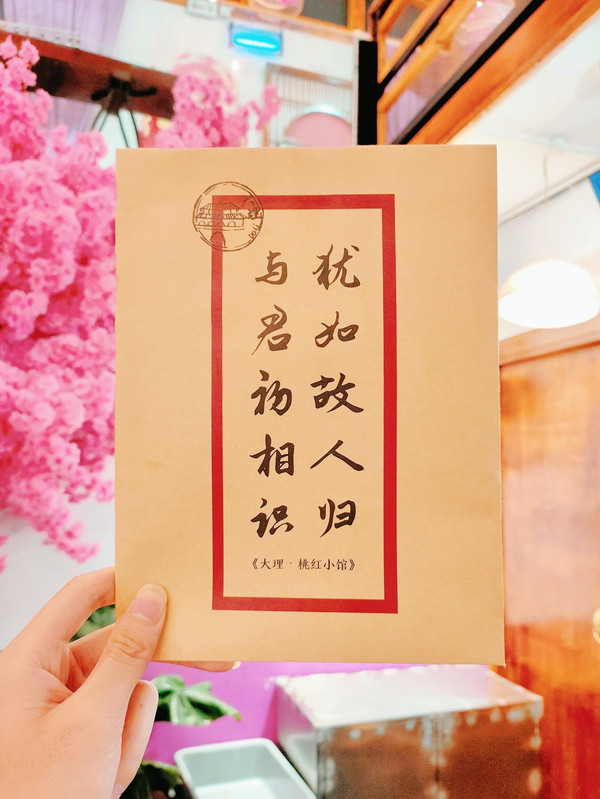 与君初相识
犹如故人归
《大理·桃红小馆》